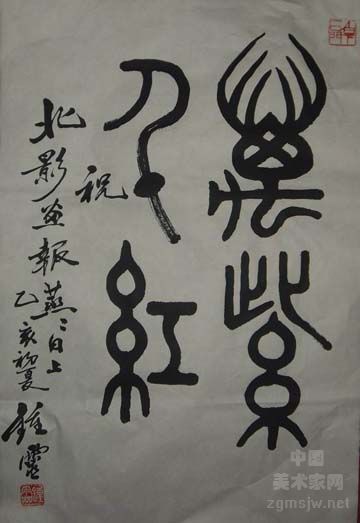 萬紫
千紅
祝
北影画報蒸〻日上
乙亥初夏
鍾靈
中国
美术家网
zgmsjw.com